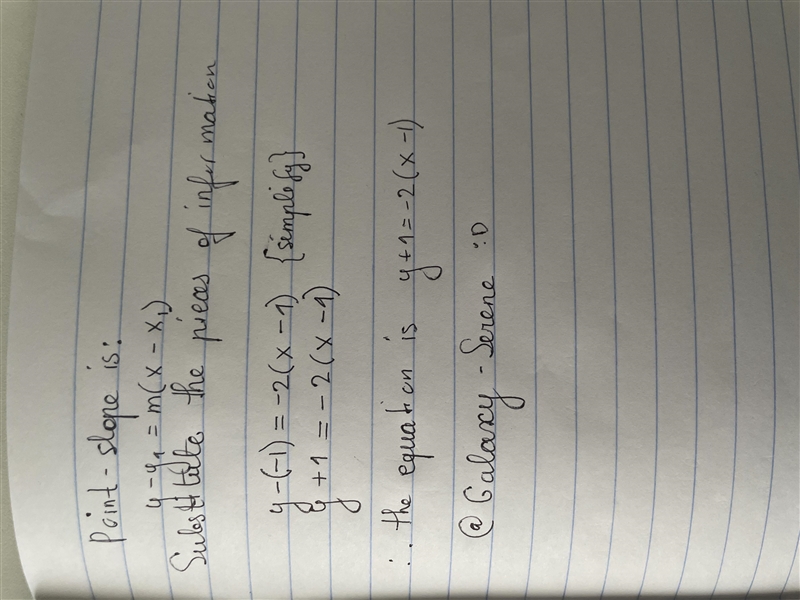 Point-slope is:
y-y₁ = m(x-x₁)
Substitute the pieces of information
y-(-1) = -2(x-1) {simplify}
y+1 = -2(x-1)
∴ the equation is y+1=-2(x-1)
@Galaxy-Serene :D